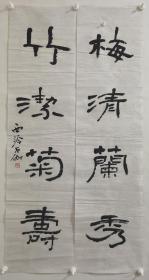 梅清蘭秀
竹潔菊壽